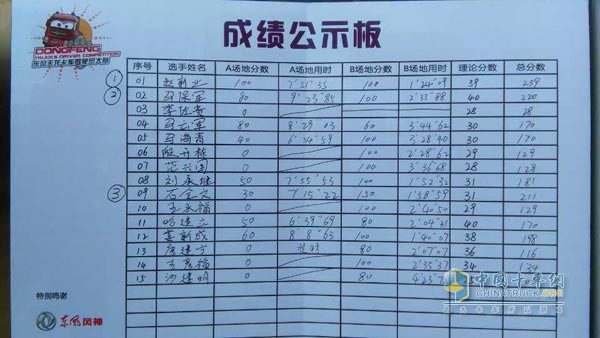 DONGFENG
TRUCKS DRIVER COMPETITION
东风天龙卡车驾驶员大赛
成绩公示板
序号 选手姓名 A场地分数 A场地用时 B场地分数 B场地用时 理论分数 总分数
① 01 赵新业 100 7'51"35 100 1'24"09 39 239
② 02 马保军 80 9'23"85 100 2'35"88 40 220
03 李佐 0 0 28 28
04 马云军 80 8'29"03 60 3'44"62 30 170
05 马海青 40 6'34"59 100 3'28"40 30 170
06 殷开栋 0 100 2'28"62 29 129
07 范兴国 0 100 3'36"68 28 128
08 刘永继 50 7'55"53 100 1'52"32 31 181
③ 09 石金文 30 7'15"22 150 1'58"59 31 211
10 王永福 0 100 2'40"50 29 129
11 哈建立 50 6'39"69 80 2'04"31 40 170
12 姜新成 60 8'8"63 100 1'40"07 38 198
13 唐建方 0 超时 80 2'07"07 36 116
14 王彦福 0 100 2'35"37 34 134
15 沙建明 0 80
特别鸣谢
东风风神
中国卡车网
CHINATRUCK.ORG